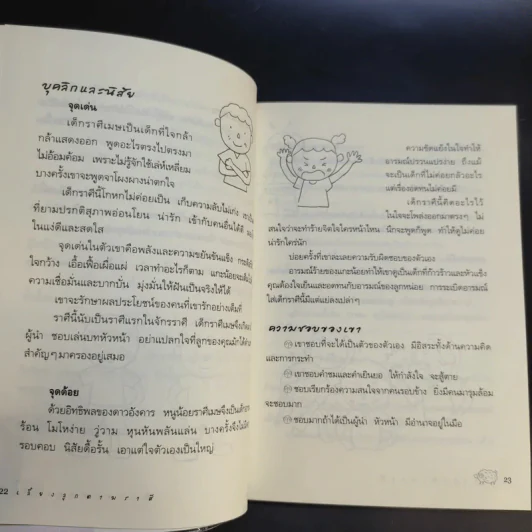 บุคลิกและนิสัย
จุดเด่น
เด็กราศีเมษเป็นเด็กที่ใจกล้า
กล้าแสดงออก พูดอะไรตรงไปตรงมา
ไม่อ้อมค้อม เพราะไม่รู้จักใช้เล่ห์เหลี่ยม
บางครั้งเขาจะพูดจาโผงผางน่าตกใจ
เด็กราศีนี้โกหกไม่ค่อยเป็น เก็บความลับไม่เก่ง
ที่ยามปรกติสุภาพอ่อนโยน น่ารัก เข้ากับคนอื่นได้ดี
ในแง่ดีและสดใส
จุดเด่นในตัวเขาคือพลังและความขยันขันแข็ง
ใจกว้าง เอื้อเฟื้อเผื่อแผ่ เวลาทำอะไรก็ตาม แกะน้อยจะเต็มไป
ความเชื่อมั่นและบากบั่น มุ่งมั่นให้ฝันเป็นจริงให้ได้
เขาจะรักษาผลประโยชน์ของคนที่เขารักอย่างเต็มที่
ราศีนี้นับเป็นราศีแรกในจักรราศี เด็กราศีเมษจึงเกิด
ผู้นำ ชอบเล่นบทหัวหน้า อย่าแปลกใจที่ลูกของคุณมักได้
สำคัญๆ มาครองอยู่เสมอ
จุดด้อย
ด้วยอิทธิพลของดาวอังคาร หนูน้อยราศีเมษจึงเป็นเด็ก
ร้อน โมโหง่าย วู่วาม หุนหันพลันแล่น บางครั้งจึงไม่
รอบคอบ นิสัยดื้อรั้น เอาแต่ใจตัวเองเป็นใหญ่
22 เลี้ยงลูกตามราศี
ความขัดแย้งในใจทำให้
อารมณ์ปรวนแปรง่าย ถึงแม้
จะเป็นเด็กที่ไม่ค่อยกลัวอะไร
แต่เรื่องอดทนไม่ค่อยมี
เด็กราศีนี้คิดอะไรไว้
ในใจจะโพล่งออกมาตรงๆ ไม่
สนใจว่าจะทำร้ายจิตใจใครหน้าไหน นึกจะพูดก็พูด ทำให้ดูไม่ค่อย
น่ารักใคร่นัก
บ่อยครั้งที่เขาละเลยความรับผิดชอบของตัวเอง
อารมณ์ร้ายของแกะน้อยทำให้เขาดูเป็นเด็กที่ก้าวร้าวและหัวแข็ง
คุณต้องใจเย็นและอดทนกับอารมณ์ของลูกหน่อย การระเบิดอารมณ์
ใส่เด็กราศีนี้มีแต่แย่ลงเปล่าๆ
ความชอบของเขา
เขาชอบที่จะได้เป็นตัวของตัวเอง มีอิสระทั้งด้านความคิด
และการกระทำ
เขาชอบคำชมและคำเยินยอ ให้กำลังใจ จะสู้ตาย
ชอบเรียกร้องความสนใจจากคนรอบข้าง ยิ่งมีคนมารุมล้อม
จะชอบมาก
ชอบมากถ้าได้เป็นผู้นำ หัวหน้า มีอำนาจอยู่ในมือ
23